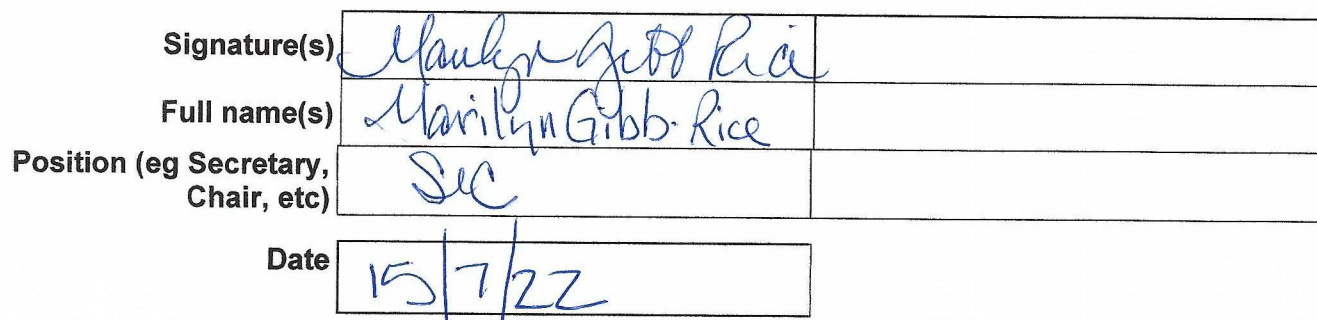 Signature(s) Marilyn Gibb Rice
Full name(s) Marilyn Gibb-Rice
Position (eg Secretary,
Chair, etc) Sec
Date 15/7/22